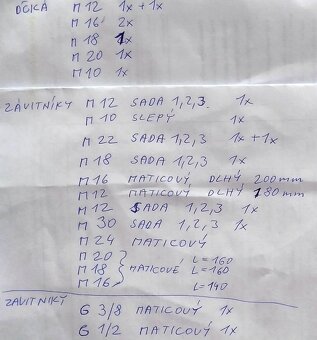 OČKÁ M 12 1x + 1x
M 16 2x
M 18 1x
M 20 1x
M 10 1x
ZÁVITNÍKY M 12 SADA 1,2,3. 1x
M 10 SLEPÝ 1x
M 22 SADA 1,2,3 1x + 1x
M 18 SADA 1,2,3 1x
M 16 MATICOVÝ DLHÝ 200mm
M 12 MATICOVÝ DLHÝ 180mm
M 12 SADA 1,2,3 1x
M 30 SADA 1,2,3 1x
M 24 MATICOVÝ
M 20 L=160
M 18 MATICOVÉ L=160
M 16 L=140
ZÁVITNÍKY
G 3/8 MATICOVÝ 1x
G 1/2 MATICOVÝ 1x